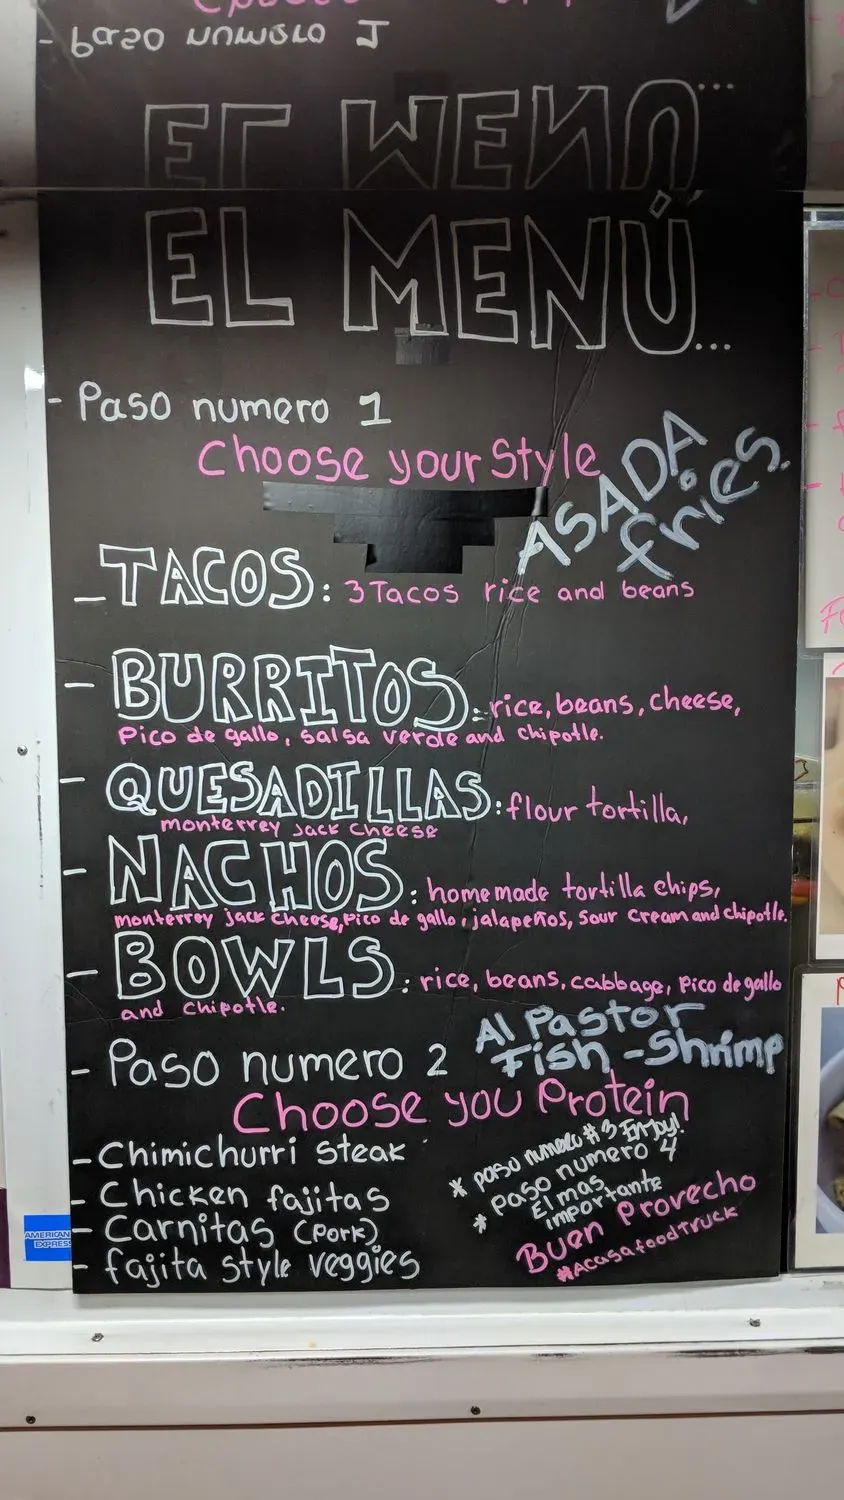 EL MENÚ...
- Paso numero 1
Choose your Style
ASADA
fries.
- TACOS: 3 Tacos rice and beans
- BURRITOS: rice, beans, cheese,
Pico de gallo, salsa verde and chipotle.
- QUESADILLAS: flour tortilla,
monterrey jack cheese
- NACHOS: homemade tortilla chips,
monterrey jack cheese, Pico de gallo, jalapeños, sour cream and chipotle.
- BOWLS: rice, beans, cabbage, Pico de gallo
and chipotle.
Al Pastor
Fish - Shrimp
- Paso numero 2
Choose you Protein
- Chimichurri steak
- Chicken fajitas
- Carnitas (Pork)
- fajita style veggies
* paso numero #3 Enjoy!
* Paso numero 4
El mas
importante
Buen Provecho
#Acasafoodtruck
AMERICAN
EXPRESS